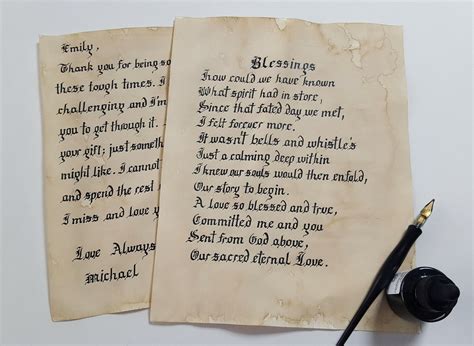 Emily,
Thank you for being so
these tough times. I
challenging and I'm
you to get through it.
your gift; just someth
might like. I cannot
and spend the rest
I miss and love y
Love Always
Michael
Blessings
How could we have known
What spirit had in store,
Since that fated day we met,
I felt forever more.
It wasn't bells and whistle's
Just a calming deep within
I knew our souls would then enfold,
Our story to begin.
A love so blessed and true,
Committed me and you
Sent from God above,
Our sacred eternal Love.